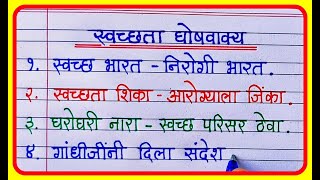 स्वच्छता घोषवाक्य
१. स्वच्छ भारत - निरोगी भारत.
२. स्वच्छता शिका - आरोग्याला जिंका.
३. घरोघरी नारा - स्वच्छ परिसर ठेवा.
४. गांधीजींनी दिला संदेश